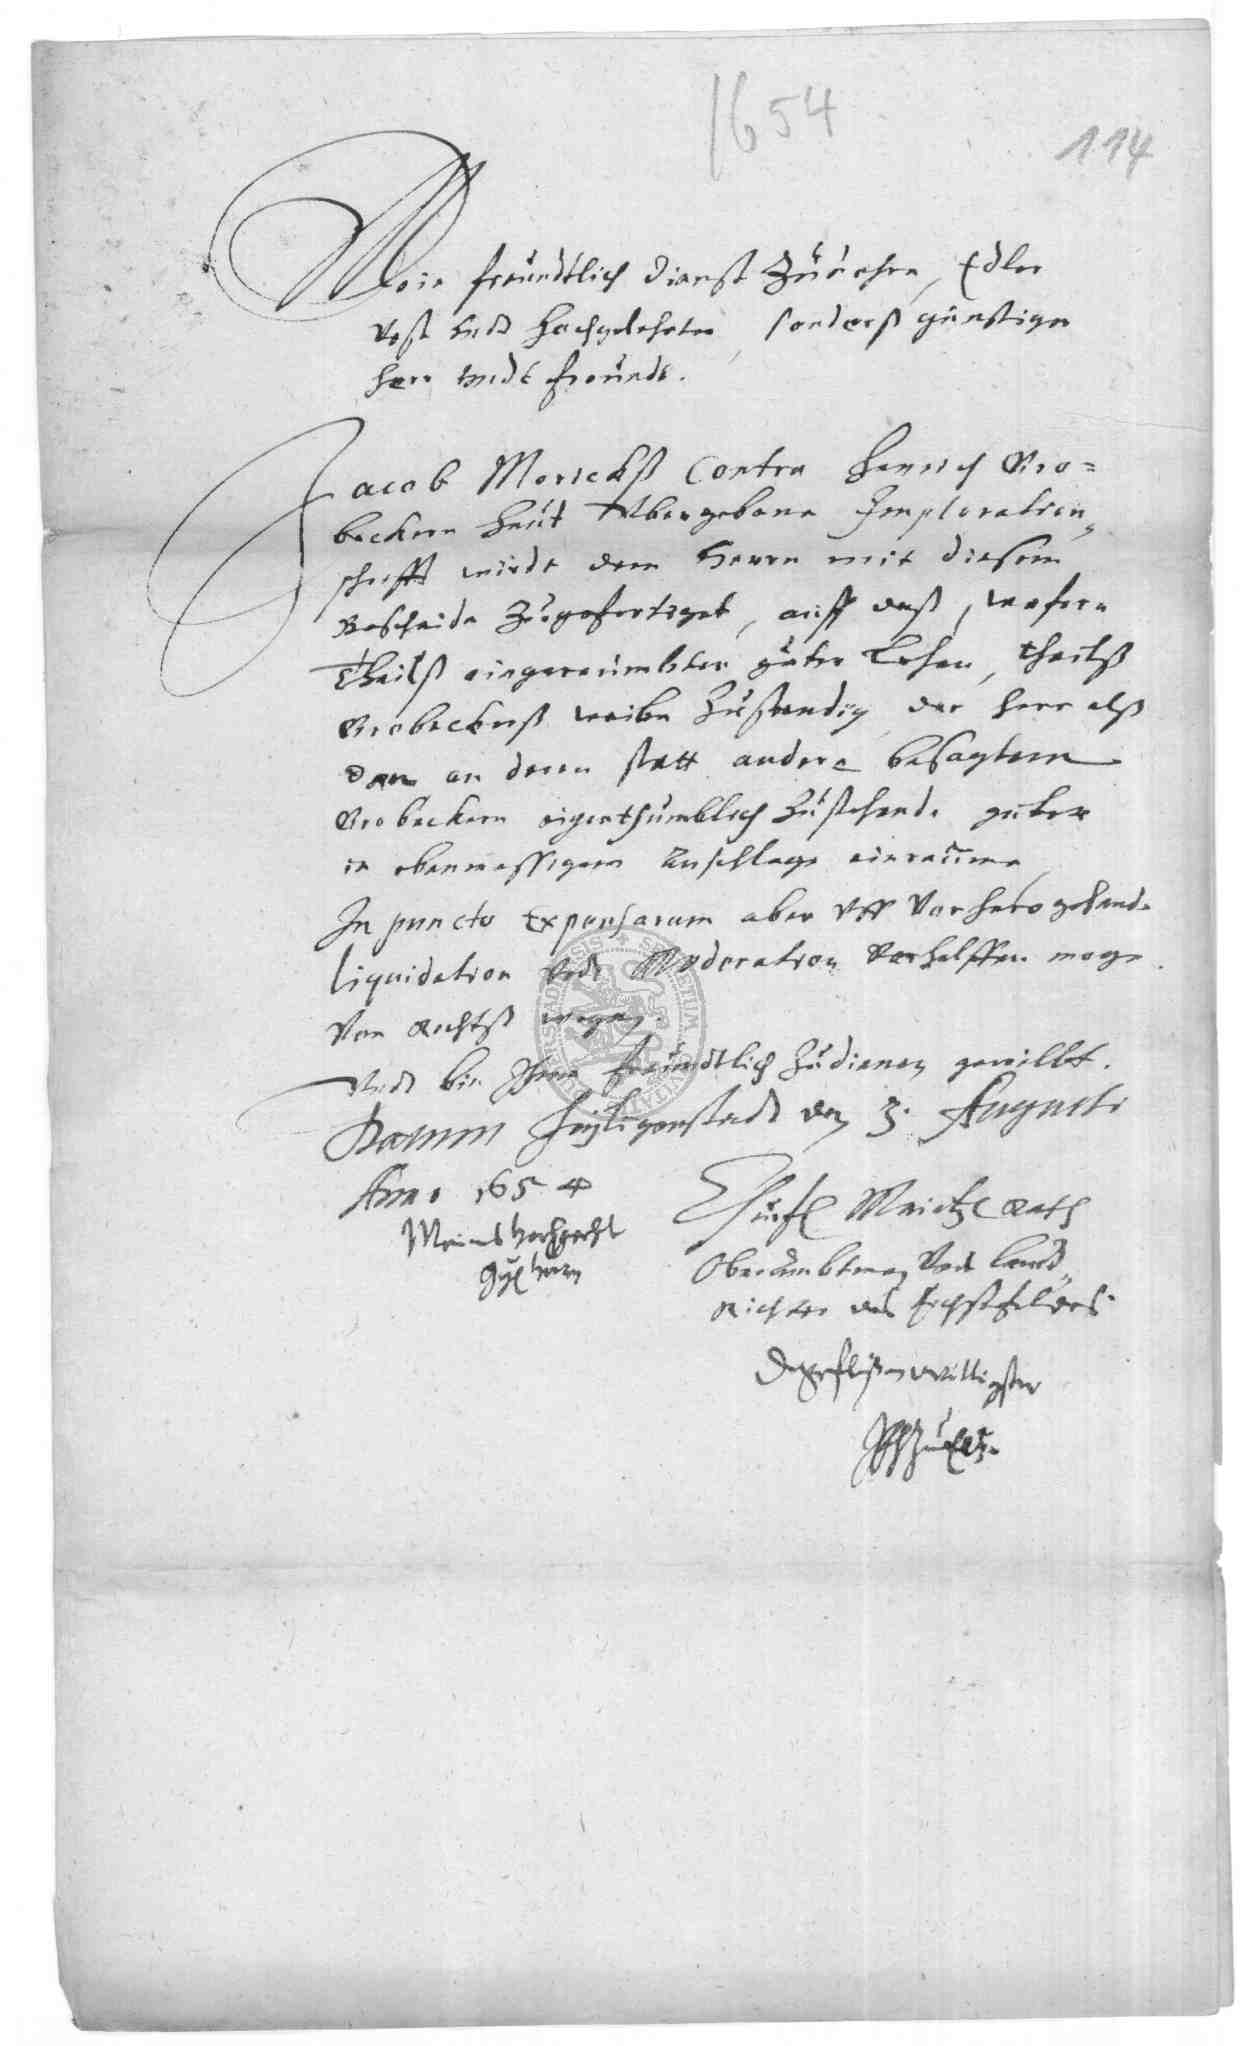 1654
114
Mein freundtlich dienst Zuuorhrn, Edler
Vest undt hochgelehrter, sonderß günstiger
herr undt freundt.
Jacob Morickß Contra Henrich Gro=
beckern heut Ubergebene Imploration
schrifft wirdt dem Herrn mit diesem
Bescheide Zugefertiget, auff daß, wofern
Theilß eingereumbter güter Lehen, theilß
Grobeckerß weibe Zustendig, der herr alß
dan an deren statt andere besagtem
Grobeckern eigenthumblich Zustehende güter
in ebenmessigem Anschlage einraume,
In puncto Expensarum aber Uff Vorhero gehende
liquidation Undt Moderation Verhelffen moge.
Von Rechtß wegen.
Undt bin Ihme freundtlich Zudienen gewillt.
Datum Heyligenstadt den 3. Augusti
Anno 1654
Churfl Maintz Rath
Oberambtman Undt Landt
Richter des Eichsfeldes.